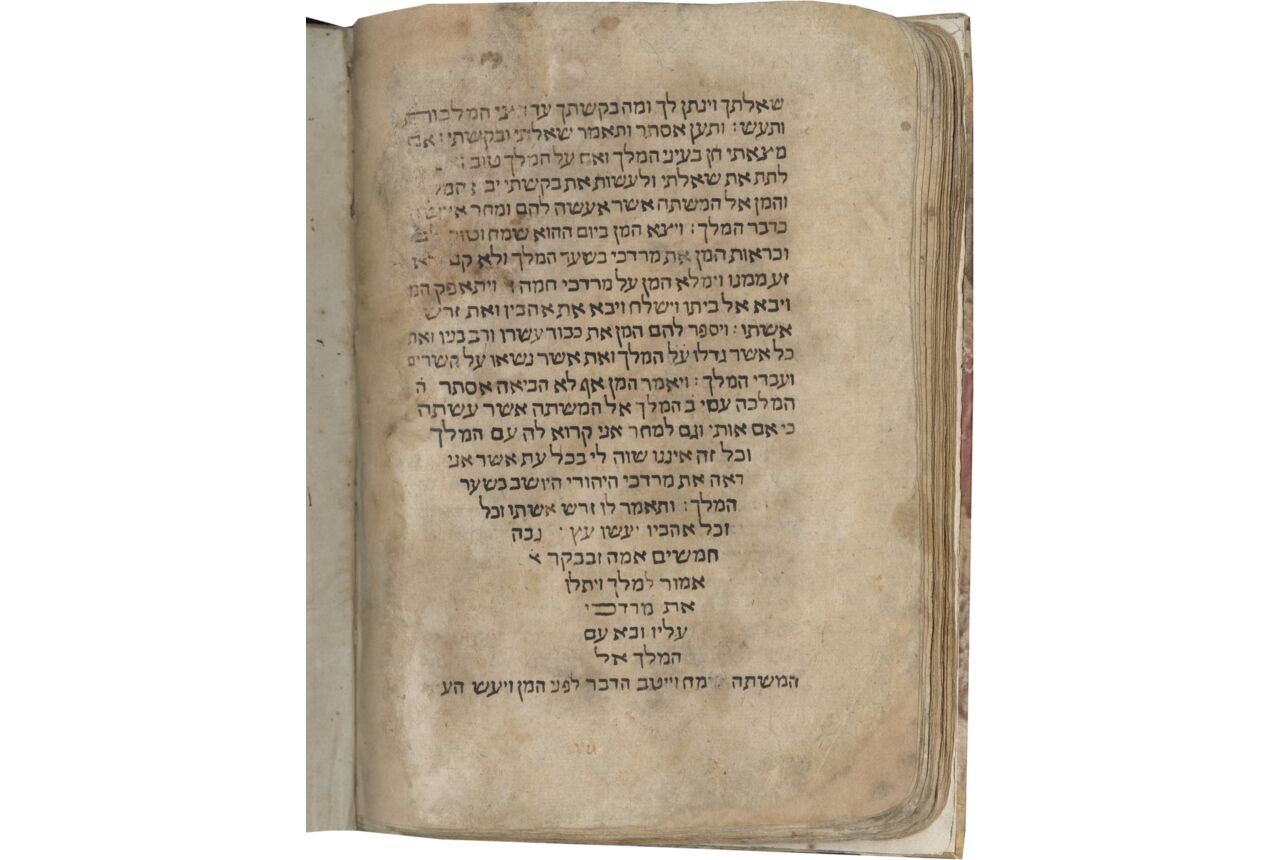 שאלתך וינתן לך ומה בקשתך עד חצי המלכות
ותעש : ותען אסתר ותאמר שאלתי ובקשתי : אם
מצאתי חן בעיני המלך ואם על המלך טוב
לתת את שאלתי ולעשות את בקשתי יבא המלך
והמן אל המשתה אשר אעשה להם ומחר אעשה
כדבר המלך : ויצא המן ביום ההוא שמח וטוב לב
וכראות המן את מרדכי בשער המלך ולא קם ולא
זע ממנו וימלא המן על מרדכי חמה ויתאפק המן
ויבא אל ביתו וישלח ויבא את אהביו ואת זרש
אשתו : ויספר להם המן את כבוד עשרו ורב בניו ואת
כל אשר גדלו על המלך ואת אשר נשאו על השרים
ועבדי המלך : ויאמר המן אף לא הביאה אסתר ה
המלכה עם המלך אל המשתה אשר עשתה
כי אם אותי וגם למחר אני קרוא לה עם המלך
וכל זה איננו שוה לי בכל עת אשר אני
ראה את מרדכי היהודי היושב בשער
המלך : ותאמר לו זרש אשתו וכל
וכל אהביו יעשו עץ גבה
חמשים אמה ובבקר א
אמור למלך ויתלו
את מרדכי
עליו ובא עם
המלך אל
המשתה שמח וייטב הדבר לפני המן ויעש הע